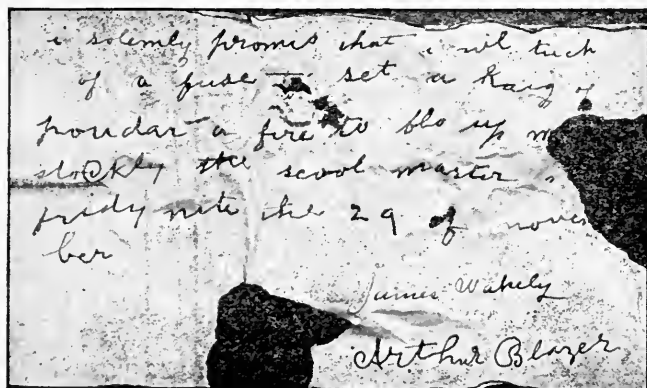 i solemly promis that i wil tuch
of a fuse set a kaig of
poudar a fire to blo up m
stockly the scool master
fridy nite the 29 of novem
ber
James Wakely
Arthur Blazer